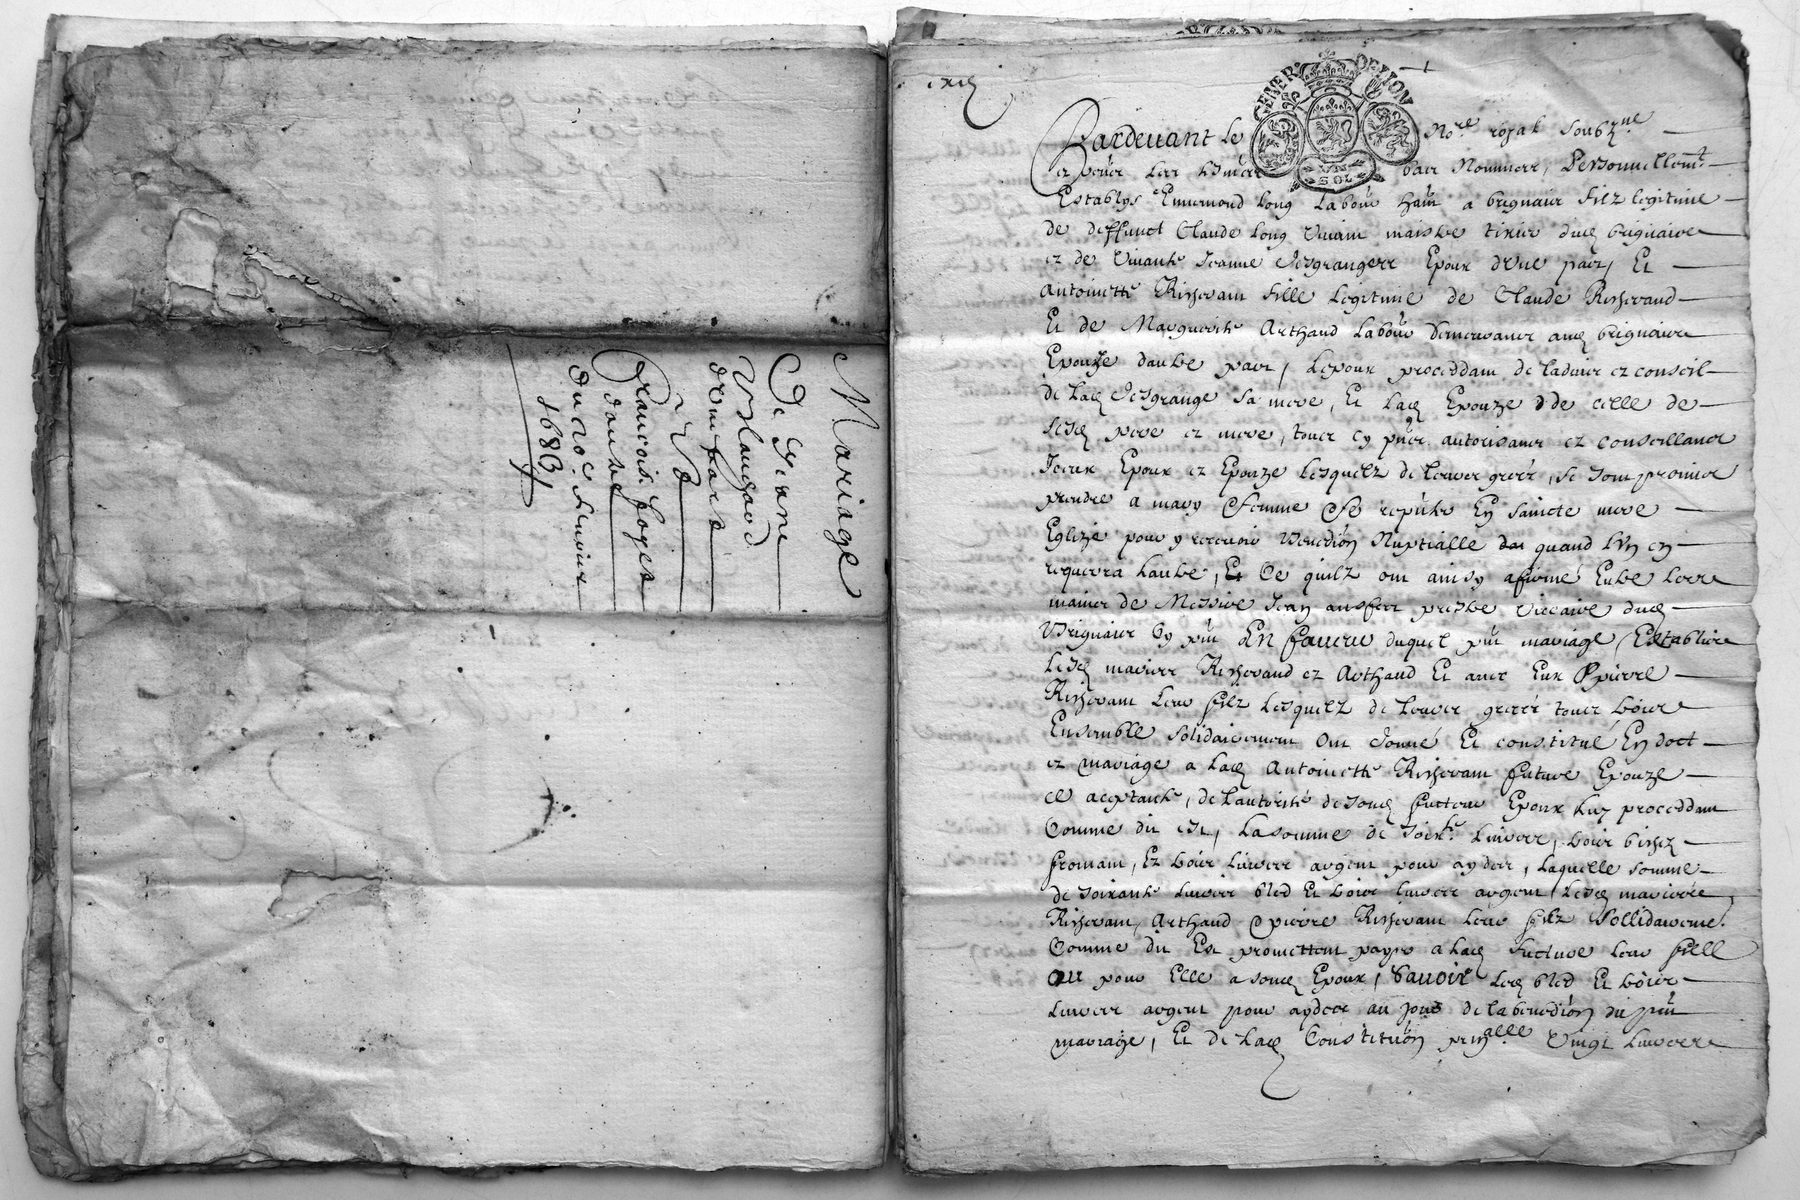 Mariage
De Lyenne
Vslaugaod
d'une part
& Zo
Francois foges
daustre
du 20e feuvrier
1683
GENER DE LION
VN SOL
Pardeuant le Nore royal soubzne
et pnts les tesmoins bas nommes, Personnellemt
Establys Ennemond Long Labour hant a brignais filz legitime
de deffunct Claude Long viuant maistre tixier dud brignais
et de viuante Jeanne Desgranges Epoux d'vne part, Et
Antoinette Risseran fille legitime de Claude Risserand
Et de Marguerite Arthaud Labour demeurants aud brignais
Epouze daultre part, Lepoux proceddant de ladvis et conseil
de lad Desgrange sa mere, Et lad Epouze de celle de
sesd pere et mere, tous cy pnts autorisants et conseillants
Iceux Epoux et Epouze lesquelz de leurs grés, se sont promis
prendre a mary & femme & se repnter En saincte mere
Eglize pour y recevoir Benedion Nuptialle quand lvn en
requerra laultre, Et Ce quilz ont ainsy afirmé Entre les
mains de Messire Jean ansfert prestre viccaire dud
Brignais Cy pnt En faueur duquel pnt mariage, Establis
lesd mariés Risserand et Arthaud Et auec Eux pierre
Risseran leur filz lesquelz de leurs grés tous trois
Ensemble solidairement ont donné Et constitué En dot
et mariage a lad Antoinette Risseran future Epouze
ce aceptante, de lautorité de sond futeur Epoux luy proceddant
Comme dit est, la somme de soixte liures, trois bichez
froment, Et trois liures argent pour ayder, laquelle somme
de soixante liures bled Et trois liures argent, lesd mariés
Risseran, Arthaud & pierre Risseran leur filz Sollidairemt
Comme dit Est promettent payer a lad future leur fille
ou pour Elle a sond Epoux, Sauoir led bled Et trois
liures argent pour ayder au jour de la benedion du pnt
mariage, Et de lad Constitution prinalle vingt liures